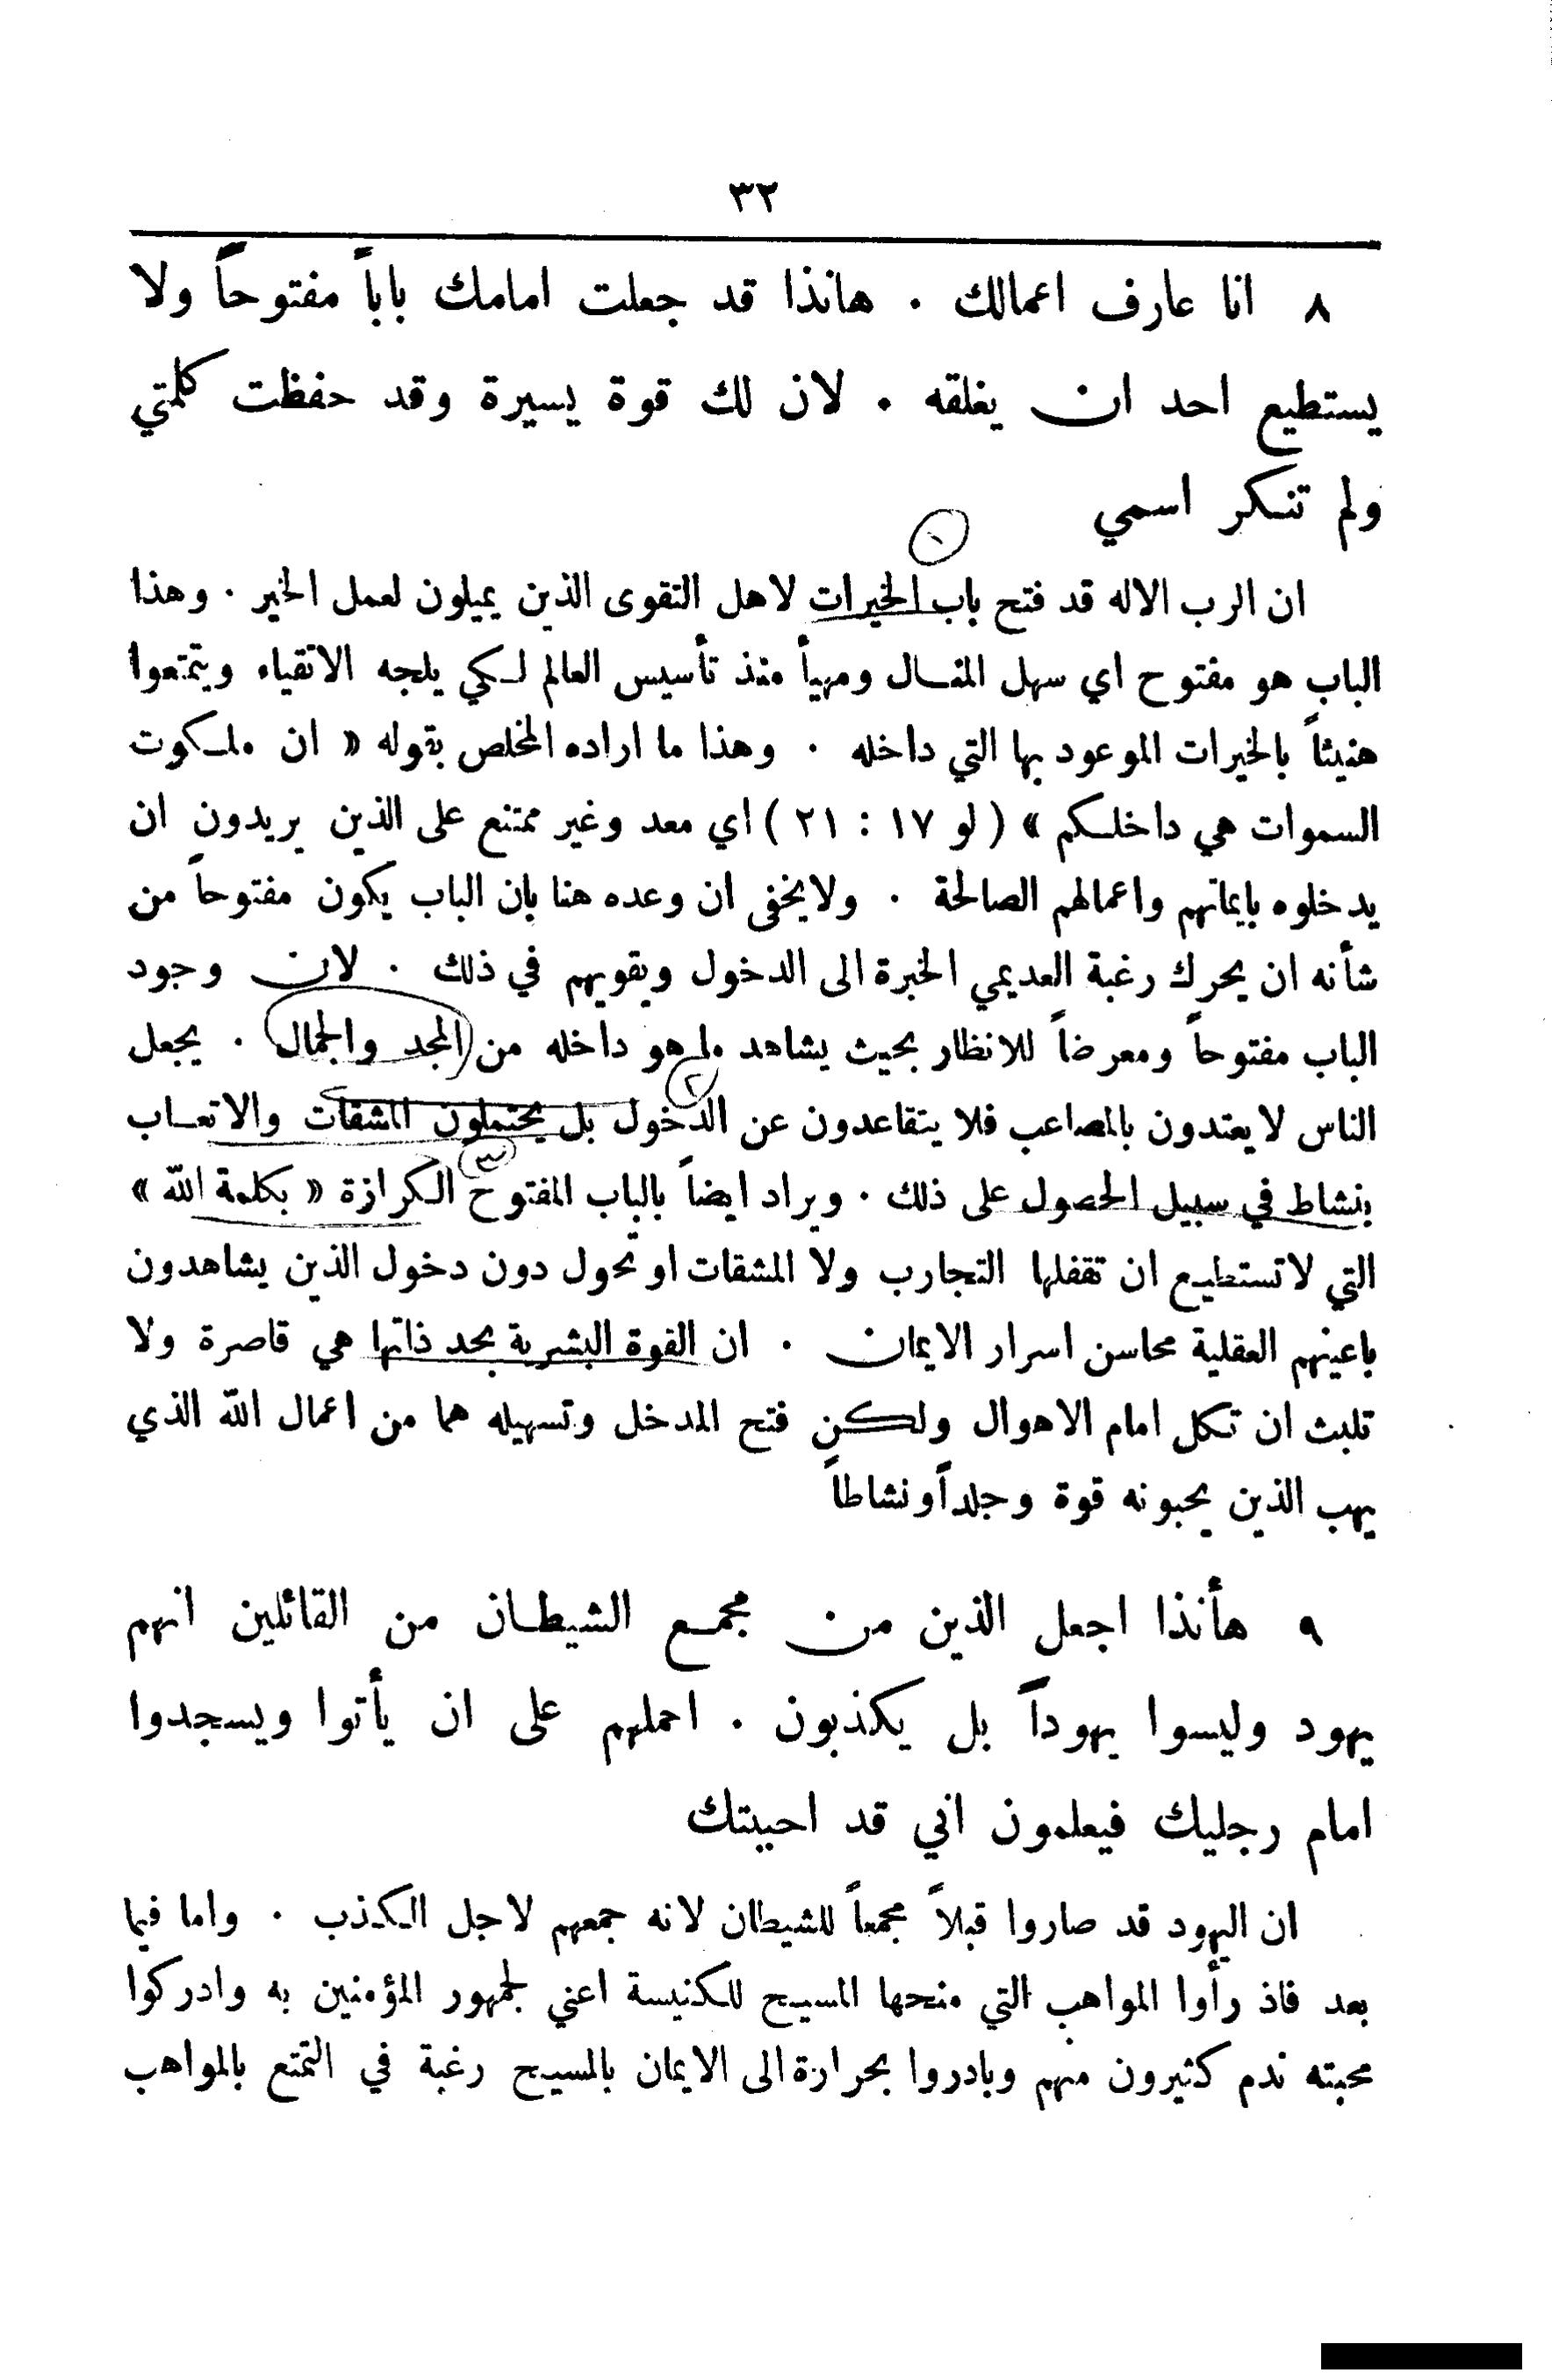 ٣٢
٨ انا عارف اعمالك . هانذا قد جعلت امامك باباً مفتوحاً ولا
يستطيع احد ان يغلقه . لان لك قوة يسيرة وقد حفظت كلمتي
ولم تنكر اسمي
١
ان الرب الاله قد فتح باب الخيرات لاهل التقوى الذين يميلون لعمل الخير . وهذا
الباب هو مفتوح اي سهل المنال ومهيأ منذ تأسيس العالم لكي يلجه الاتقياء ويتمتعوا
هنيئاً بالخيرات الموعود بها التي داخله . وهذا ما اراده المخلص بقوله « ان ملكوت
السموات هي داخلكم » ( لو ١٧ : ٢١ ) اي معد وغير ممتنع على الذين يريدون ان
يدخلوه بايمانهم واعمالهم الصالحة . ولا يخفى ان وعده هنا بان الباب يكون مفتوحاً من
شأنه ان يحرك رغبة العديمي الخبرة الى الدخول ويقويهم في ذلك . لان وجود
الباب مفتوحاً ومعرضاً للانظار بحيث يشاهد ما هو داخله من المجد والجمال . يجعل
٢
الناس لا يعتدون بالمصاعب فلا يتقاعدون عن الدخول بل يحتملون المشقات والاتعاب
٣
بنشاط في سبيل الحصول على ذلك . ويراد ايضاً بالباب المفتوح الكرازة « بكلمة الله »
التي لا تستطيع ان تقفلها التجارب ولا المشقات او تحول دون دخول الذين يشاهدون
باعينهم العقلية محاسن اسرار الايمان . ان القوة البشرية بحد ذاتها هي قاصرة ولا
تلبث ان تكل امام الاهوال ولكن فتح المدخل وتسهيله هما من اعمال الله الذي
يهب الذين يحبونه قوة وجلداً ونشاطاً
٩ هأنذا اجعل الذين من مجمع الشيطان من القائلين انهم
يهود وليسوا يهوداً بل يكذبون . احملهم على ان يأتوا ويسجدوا
امام رجليك فيعلمون اني قد احببتك
ان اليهود قد صاروا قبلاً مجمعاً للشيطان لانه جمعهم لاجل الكذب . واما فيما
بعد فاذ رأوا المواهب التي منحها المسيح للكنيسة اعني لجمهور المؤمنين به وادركوا
محبته ندم كثيرون منهم وبادروا بحرارة الى الايمان بالمسيح رغبة في التمتع بالمواهب